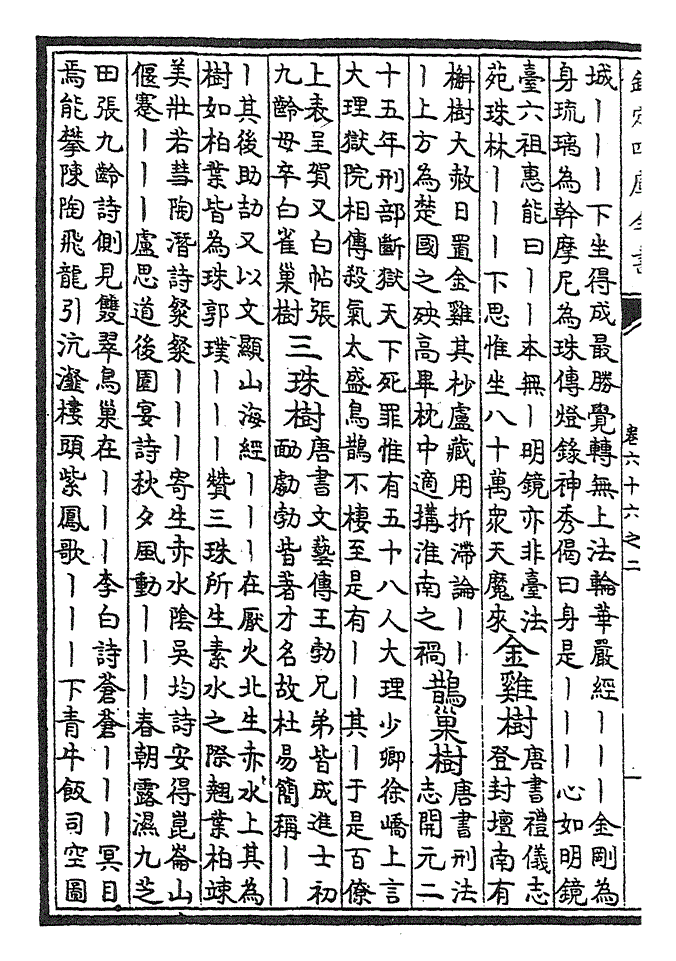 欽定四庫全書
卷六十六之二
城｜｜｜下坐得成最勝覺轉無上法輪華嚴經｜｜｜金剛為
身琉璃為幹摩尼為珠傳燈錄神秀偈曰身是｜｜｜心如明鏡
臺六祖惠能曰｜｜本無｜明鏡亦非臺法
苑珠林｜｜｜下思惟坐八十萬衆天魔來
金雞樹
唐書禮儀志
登封壇南有
槲樹大赦日置金雞其杪盧藏用折滯論｜｜
｜上方為楚國之殃高畢枕中適搆淮南之禍
鵲巢樹
唐書刑法
志開元二
十五年刑部斷獄天下死罪惟有五十八人大理少卿徐嶠上言
大理獄院相傳殺氣太盛鳥鵲不棲至是有｜｜其｜于是百僚
上表呈賀又白帖張
九齡母卒白雀巢樹
三珠樹
唐書文藝傳王勃兄弟皆成進士初
勔勮勃皆著才名故杜易簡稱｜｜
｜其後助劼又以文顯山海經｜｜｜在厭火北生赤水上其為
樹如柏葉皆為珠郭璞｜｜｜贊三珠所生素水之際翹葉柏竦
美壯若彗陶潛詩粲粲｜｜｜寄生赤水陰吳均詩安得崑崙山
偃蹇｜｜｜盧思道後園宴詩秋夕風動｜｜｜春朝露濕九芝
田張九齡詩側見雙翠鳥巢在｜｜｜李白詩蒼蒼｜｜｜冥目
焉能攀陳陶飛龍引沆瀣樓頭紫鳳歌｜｜｜下青牛飯司空圖